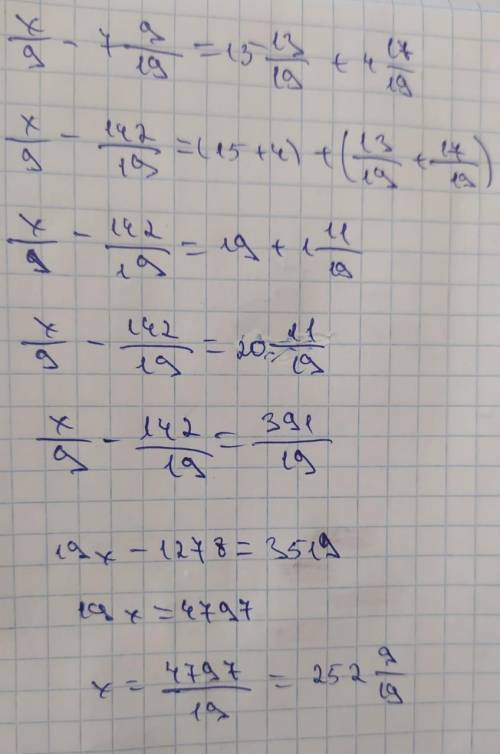 x/9 - 7 9/19 = 15 13/19 + 4 17/19
x/9 - 142/19 = (15 + 4) + (13/19 + 17/19)
x/9 - 142/19 = 19 + 1 11/19
x/9 - 142/19 = 20 11/19
x/9 - 142/19 = 391/19
19x - 1278 = 3519
19x = 4797
x = 4797/19 = 252 9/19